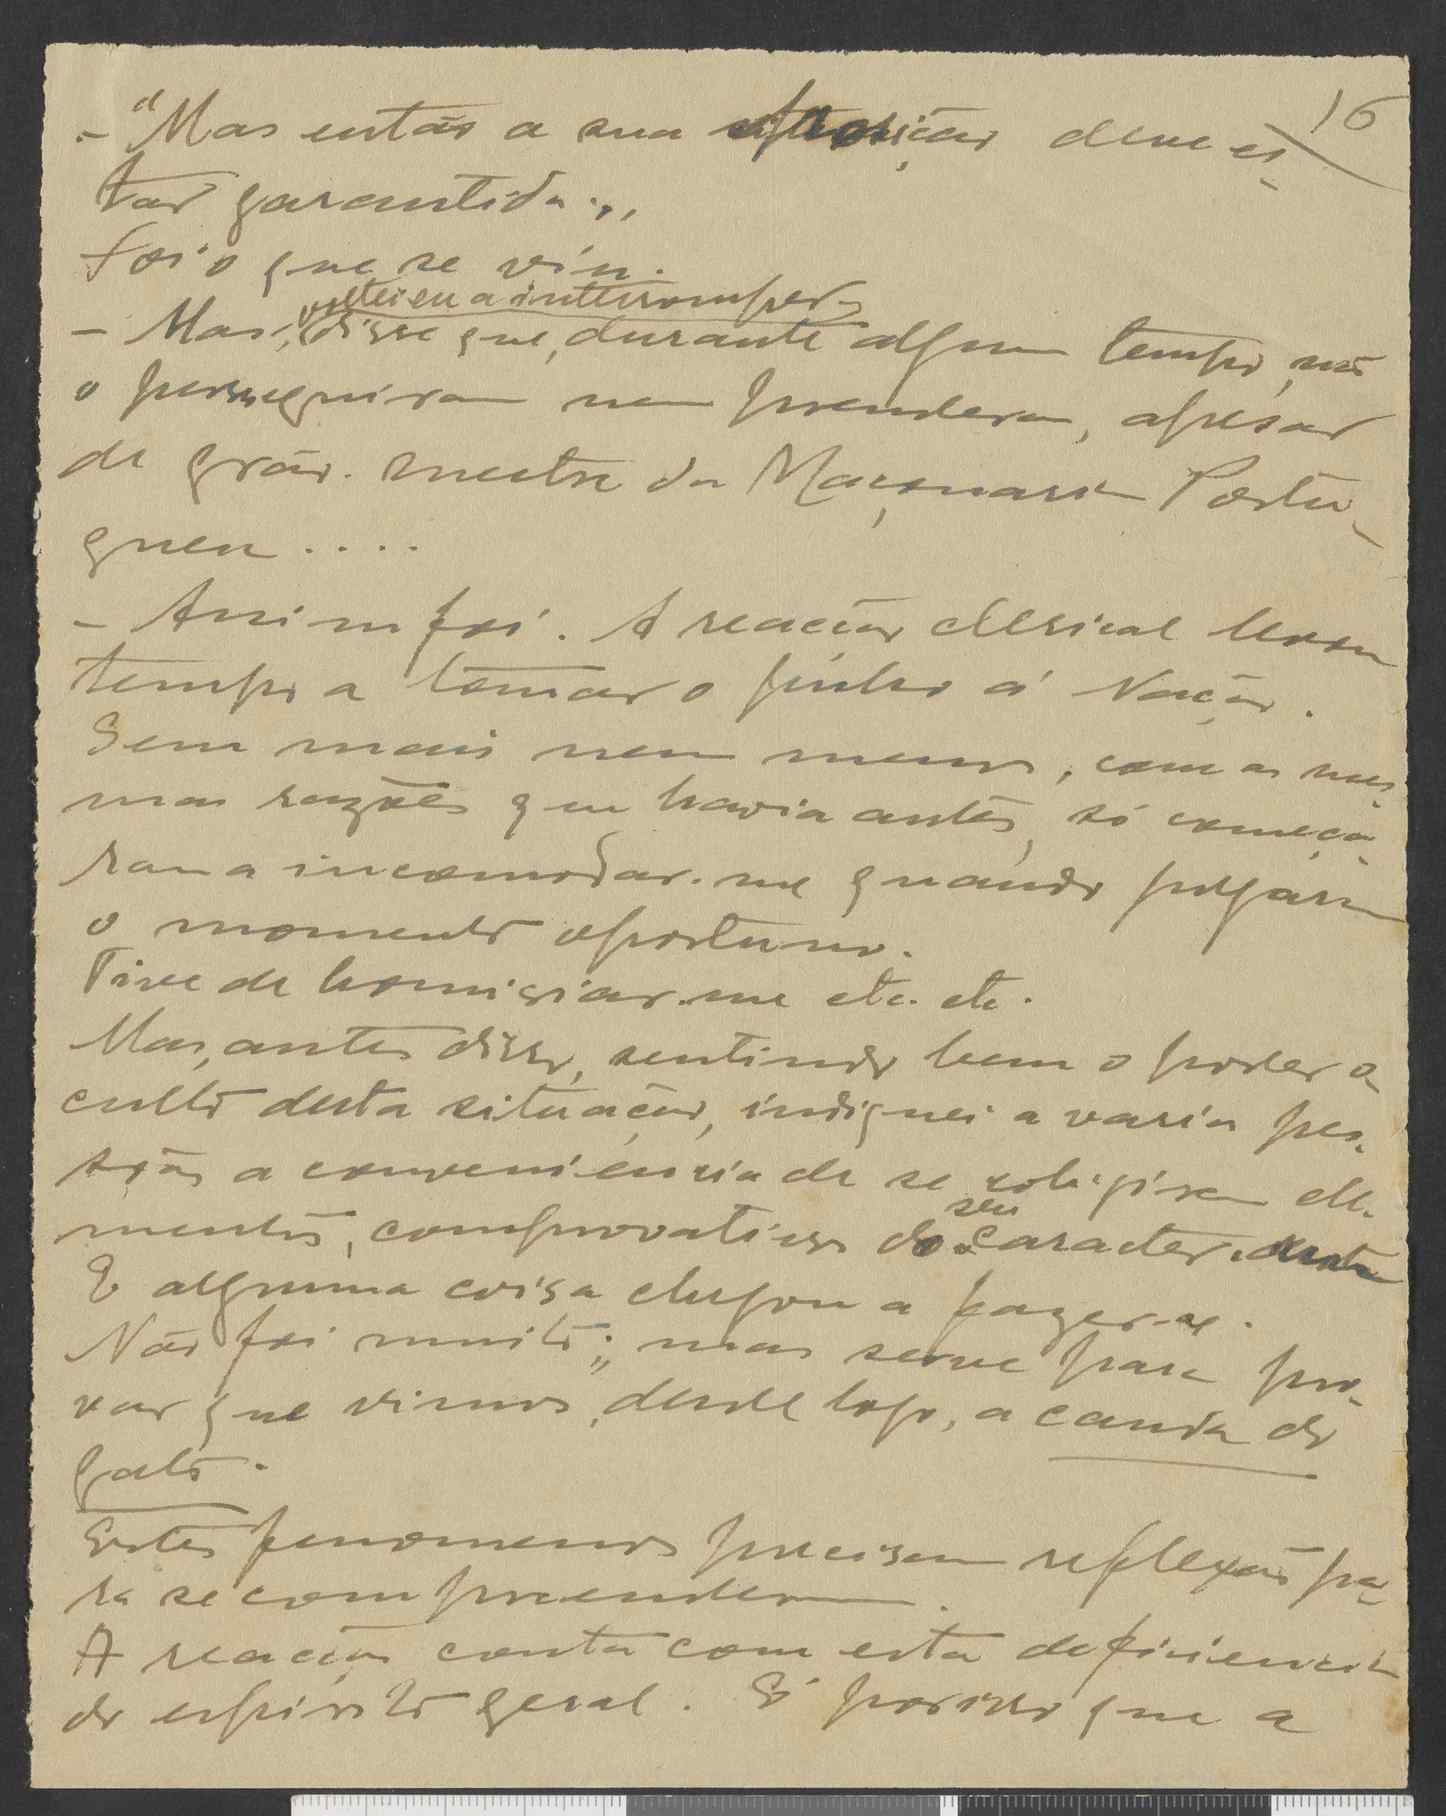 16
– "Mas então a sua deve es-
tar garantida.,,
Foi o que se viu.
voltei eu a interromper,
– Mas, disse que, durante algum tempo, não
o perseguiram nem prenderam, apesar
de grão-mestre da Maçonaria Portu-
gueza....
– Assim foi. A reacção clerical levou
tempo a tomar o pulso á Nação.
Sem mais nem menos, com as mes-
mas razões que havia antes, só começá-
ram a incomodar-me quando julgaram
o momento oportuno.
Tive de homisiar-me etc. etc.
Mas, antes disso, sentindo bem o poder o-
culto desta situação, indiquei a varias pes-
sôas a conveniencia de se coligirem ele-
mentos, comprovativos do seu caracter.
E alguma coisa chegou a fazer-se.
Não foi muito; mas serve para pro-
var que vimos, desde logo, a cauda do
gato.
Estes fenomenos precisam reflexão pa-
ra se comprehenderem.
A reacção conta com esta deficiencia
do espirito geral. É por isso que a